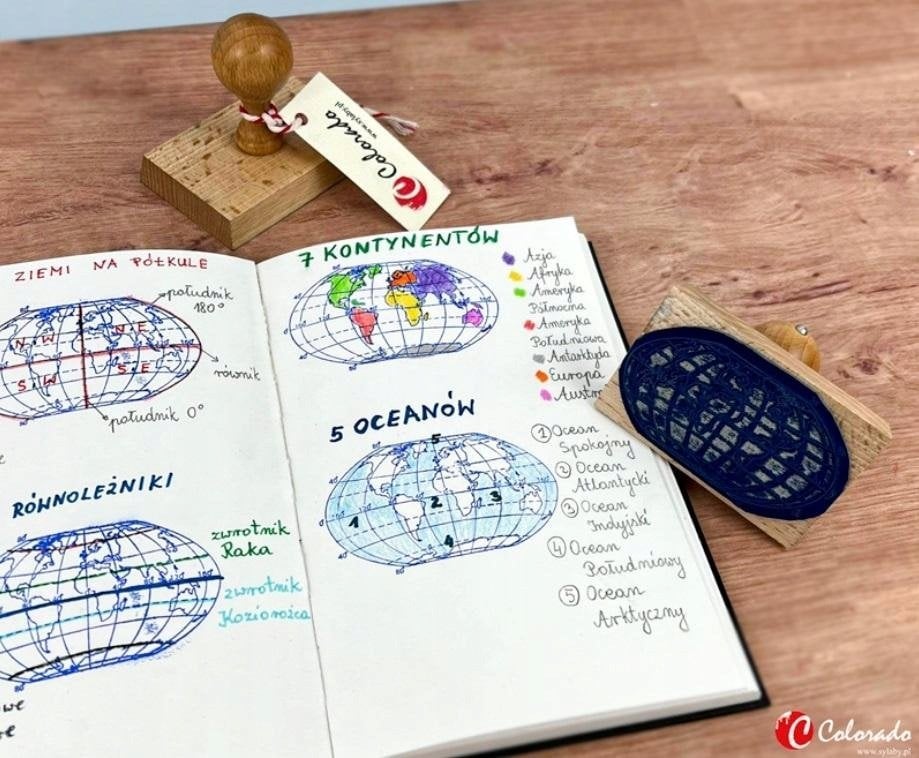 Colorado
www.sylaby.pl
ZIEMI NA PÓŁKULE
południk
180°
N.W
N.E
S.W
S.E
równik
południk 0°
RÓWNOLEŻNIKI
zwrotnik
Raka
zwrotnik
Koziorożca
7 KONTYNENTÓW
Azja
Afryka
Ameryka
Północna
Ameryka
Południowa
Antarktyda
Europa
5 OCEANÓW
5
1
2
3
4
1 Ocean
Spokojny
2 Ocean
Atlantycki
3 Ocean
Indyjski
4 Ocean
Południowy
5 Ocean
Arktyczny
Colorado
www.sylaby.pl